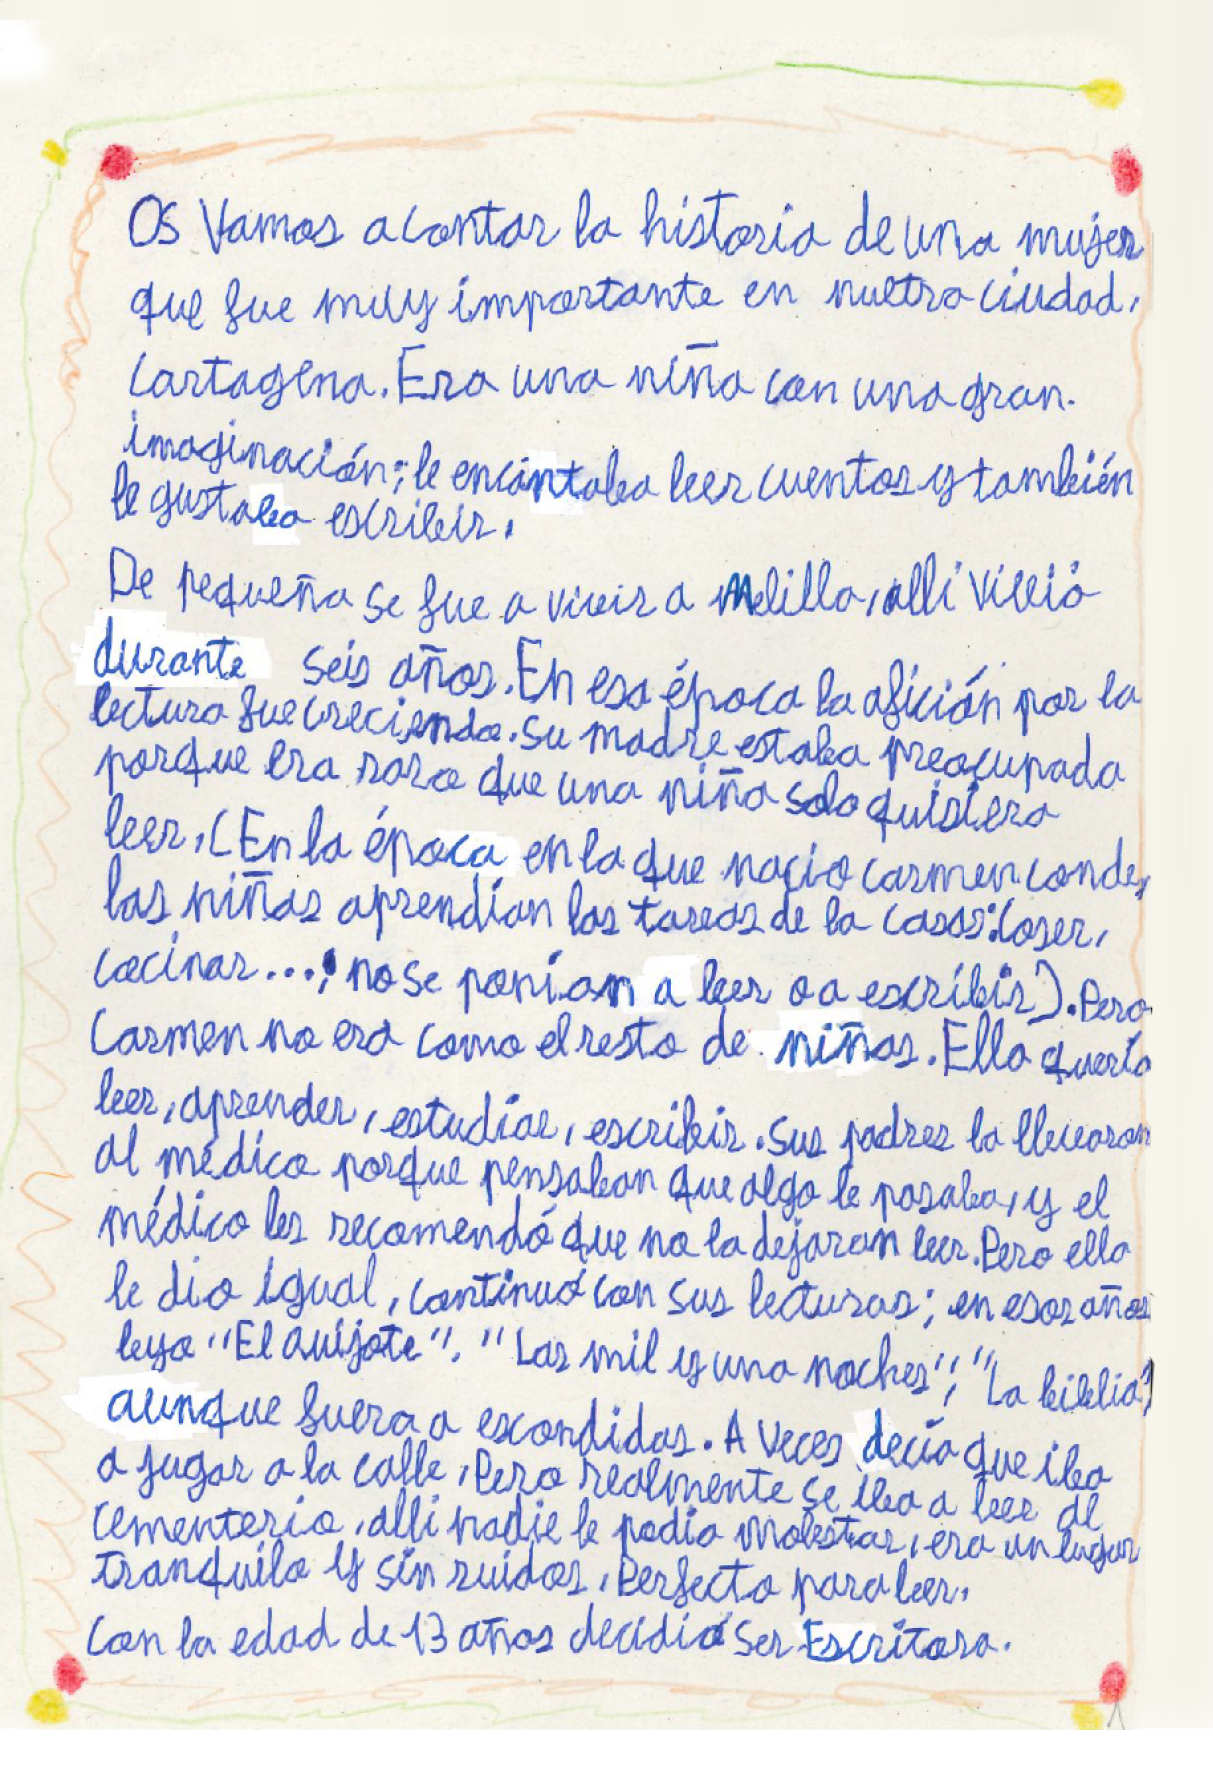 Os Vamos a contar la historia de una mujer
que fue muy importante en nuetra ciudad,
Cartagena. Era una niña con una gran.
imaginación; le encantaba leer cuentos y también
le gustaba escribir.
De pequeña se fue a vivir a Melilla, alli Vivió
durante seis años. En esa época la afición por la
lectura fue creciendo. Su madre estaba preocupada
porque era raro que una niña solo quisiera
leer, (En la época en la que nacio carmen conde,
las niñas aprendían las tareas de la casas: coser,
cocinar...; no se ponían a leer o a escribir). Pero
Carmen no era como el resto de niñas. Ella quería
leer, aprender, estudiar, escribir. Sus padres la llevaron
al médico porque pensaban que algo le pasaba, y el
médico les recomendó que no la dejaran leer. Pero ella
le dio igual, continuó con sus lecturas; en esos años
leyo "El Quijote". "Las mil y una noches"; "La biblia"
aunque fuera a escondidas. A Veces decía que iba
a jugar a la calle, Pero realmente se iba a leer al
cementerio, alli nadie le podia molestar, era un lugar
tranquilo y sin ruidos, Perfecto para leer.
Con la edad de 13 años decidió Ser Escritora.